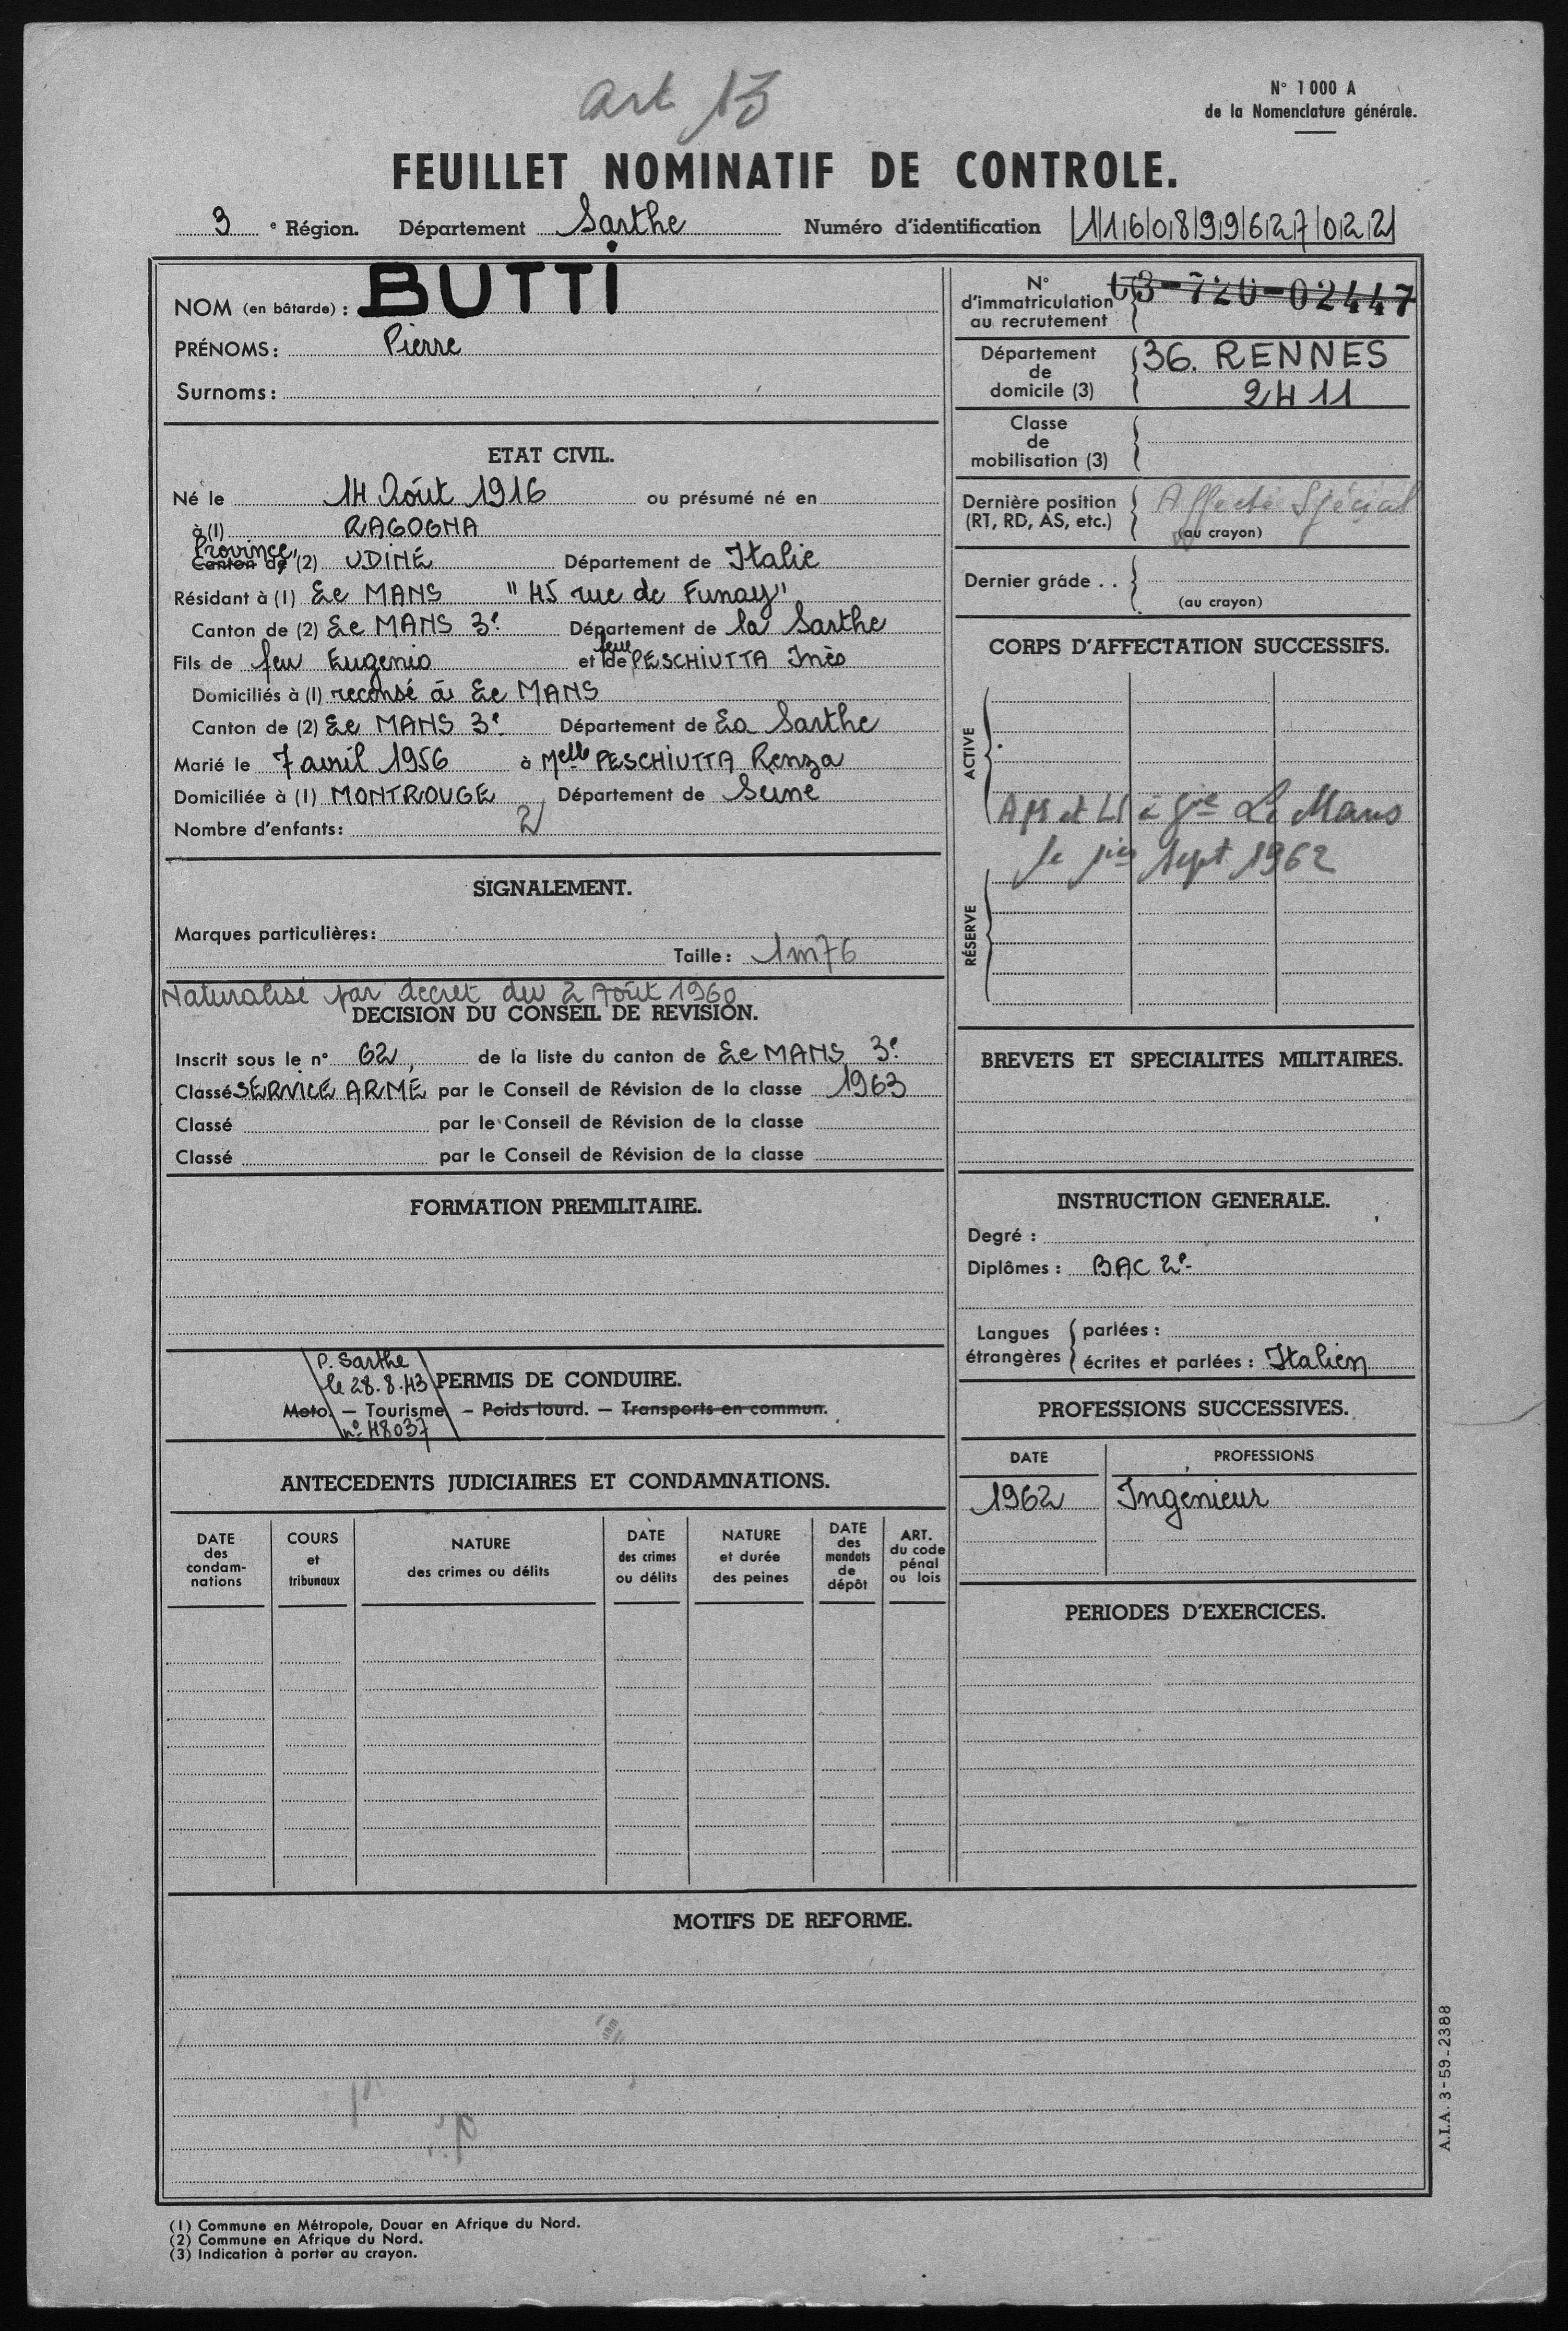 art 13
N° 1000 A
de la Nomenclature générale.
FEUILLET NOMINATIF DE CONTROLE.
3 e Région. Département Sarthe Numéro d'identification |1|1|6|0|8|9|9|6|2|7|0|2|2|
NOM (en bâtarde) : BUTTI
PRÉNOMS: Pierre
Surnoms:
ETAT CIVIL.
Né le 14 Août 1916 ou présumé né en
à (1) RAGOGNA
Province
Canton de (2) UDINE Département de Italie
Résidant à (1) Le MANS "45 rue de Funay"
Canton de (2) Le MANS 3e Département de la Sarthe
Fils de feu Eugenio et feue de PESCHIUTTA Inès
Domiciliés à (1) recensé à Le MANS
Canton de (2) Le MANS 3e Département de La Sarthe
Marié le 7 avril 1956 à Melle PESCHIUTTA Renza
Domiciliée à (1) MONTROUGE Département de Seine
Nombre d'enfants: 2
SIGNALEMENT.
Marques particulières:
Taille: 1m76
Naturalisé par décret du 2 Août 1960
DECISION DU CONSEIL DE REVISION.
Inscrit sous le n° 62, de la liste du canton de Le MANS 3e
Classé SERVICE ARMÉ par le Conseil de Révision de la classe 1963
Classé par le Conseil de Révision de la classe
Classé par le Conseil de Révision de la classe
FORMATION PREMILITAIRE.
P. Sarthe
le 28.8.43 PERMIS DE CONDUIRE.
Moto. — Tourisme — Poids lourd. — Transports en commun.
n° 48037
ANTECEDENTS JUDICIAIRES ET CONDAMNATIONS.
DATE des condam-nations
COURS et tribunaux
NATURE des crimes ou délits
DATE des crimes ou délits
NATURE et durée des peines
DATE des mandats de dépôt
ART. du code pénal ou lois
N° d'immatriculation au recrutement 63-720-02447
Département de domicile (3) 36. RENNES
2411
Classe de mobilisation (3)
Dernière position (RT, RD, AS, etc.) Affecté Spécial
(au crayon)
Dernier grade . .
(au crayon)
CORPS D'AFFECTATION SUCCESSIFS.
ACTIVE
Le Mans
le sept 1962
RÉSERVE
BREVETS ET SPECIALITES MILITAIRES.
INSTRUCTION GENERALE.
Degré :
Diplômes : BAC 2e
Langues étrangères
parlées :
écrites et parlées : Italien
PROFESSIONS SUCCESSIVES.
DATE PROFESSIONS
1962 Ingénieur
PERIODES D'EXERCICES.
MOTIFS DE REFORME.
A.I.A. 3-59-2388
(1) Commune en Métropole, Douar en Afrique du Nord.
(2) Commune en Afrique du Nord.
(3) Indication à porter au crayon.